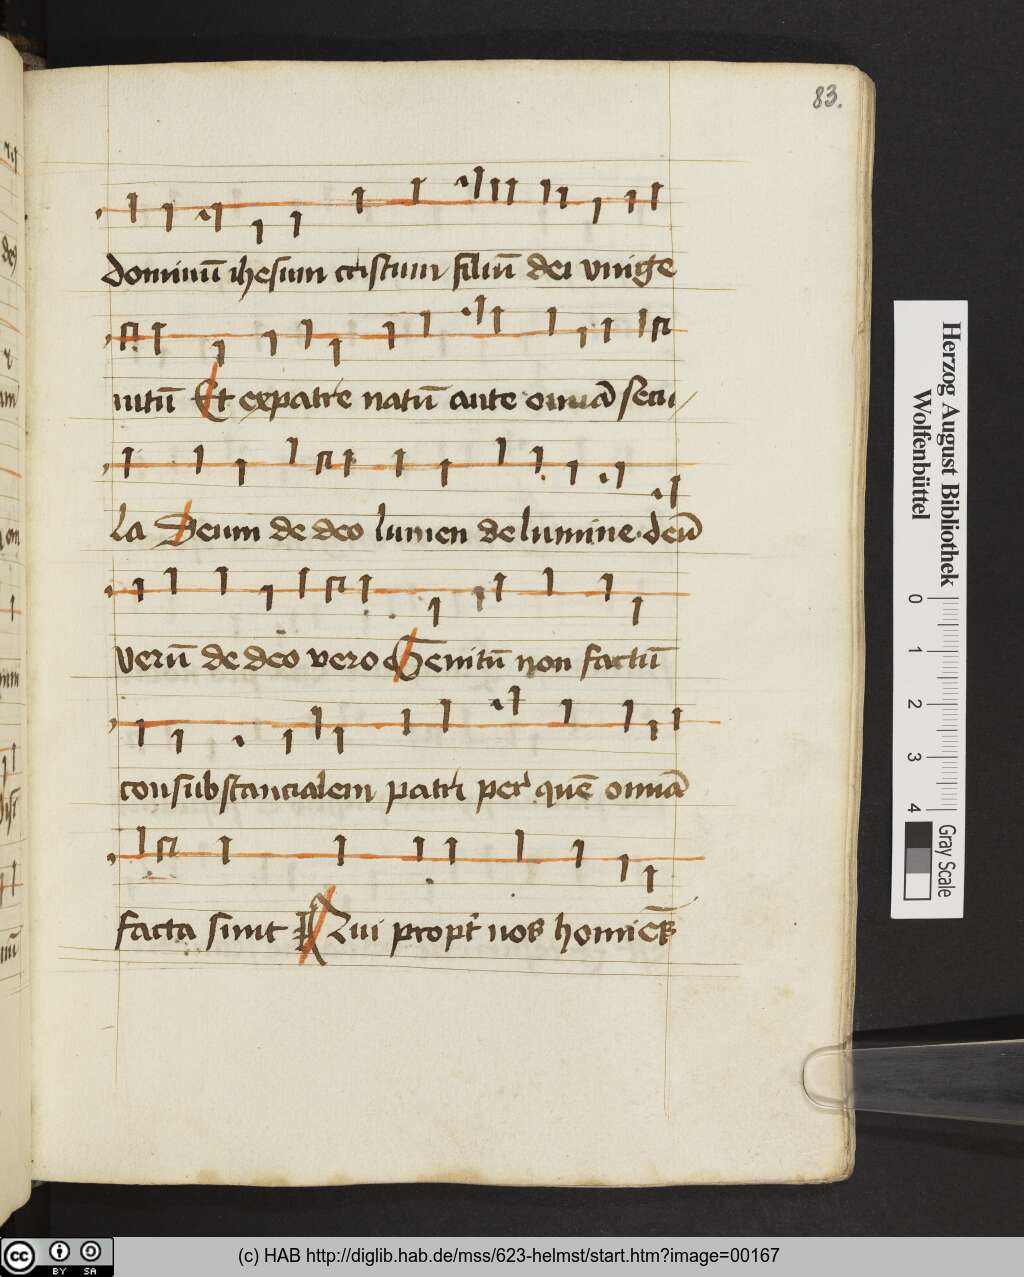 83.
dominū ihesum cristum filiū dei vnige
nitū Et expatre natū ante omīā secu
la Deum de deo lumen de lumine. deū
verū de deo vero Genitū non factū
consubstancialem patri per quē omīā
facta sunt Qui propt' nos homīēs
Herzog August Bibliothek
Wolfenbüttel
0 1 2 3 4
Gray Scale
cc BY SA
(c) HAB http://diglib.hab.de/mss/623-helmst/start.htm?image=00167